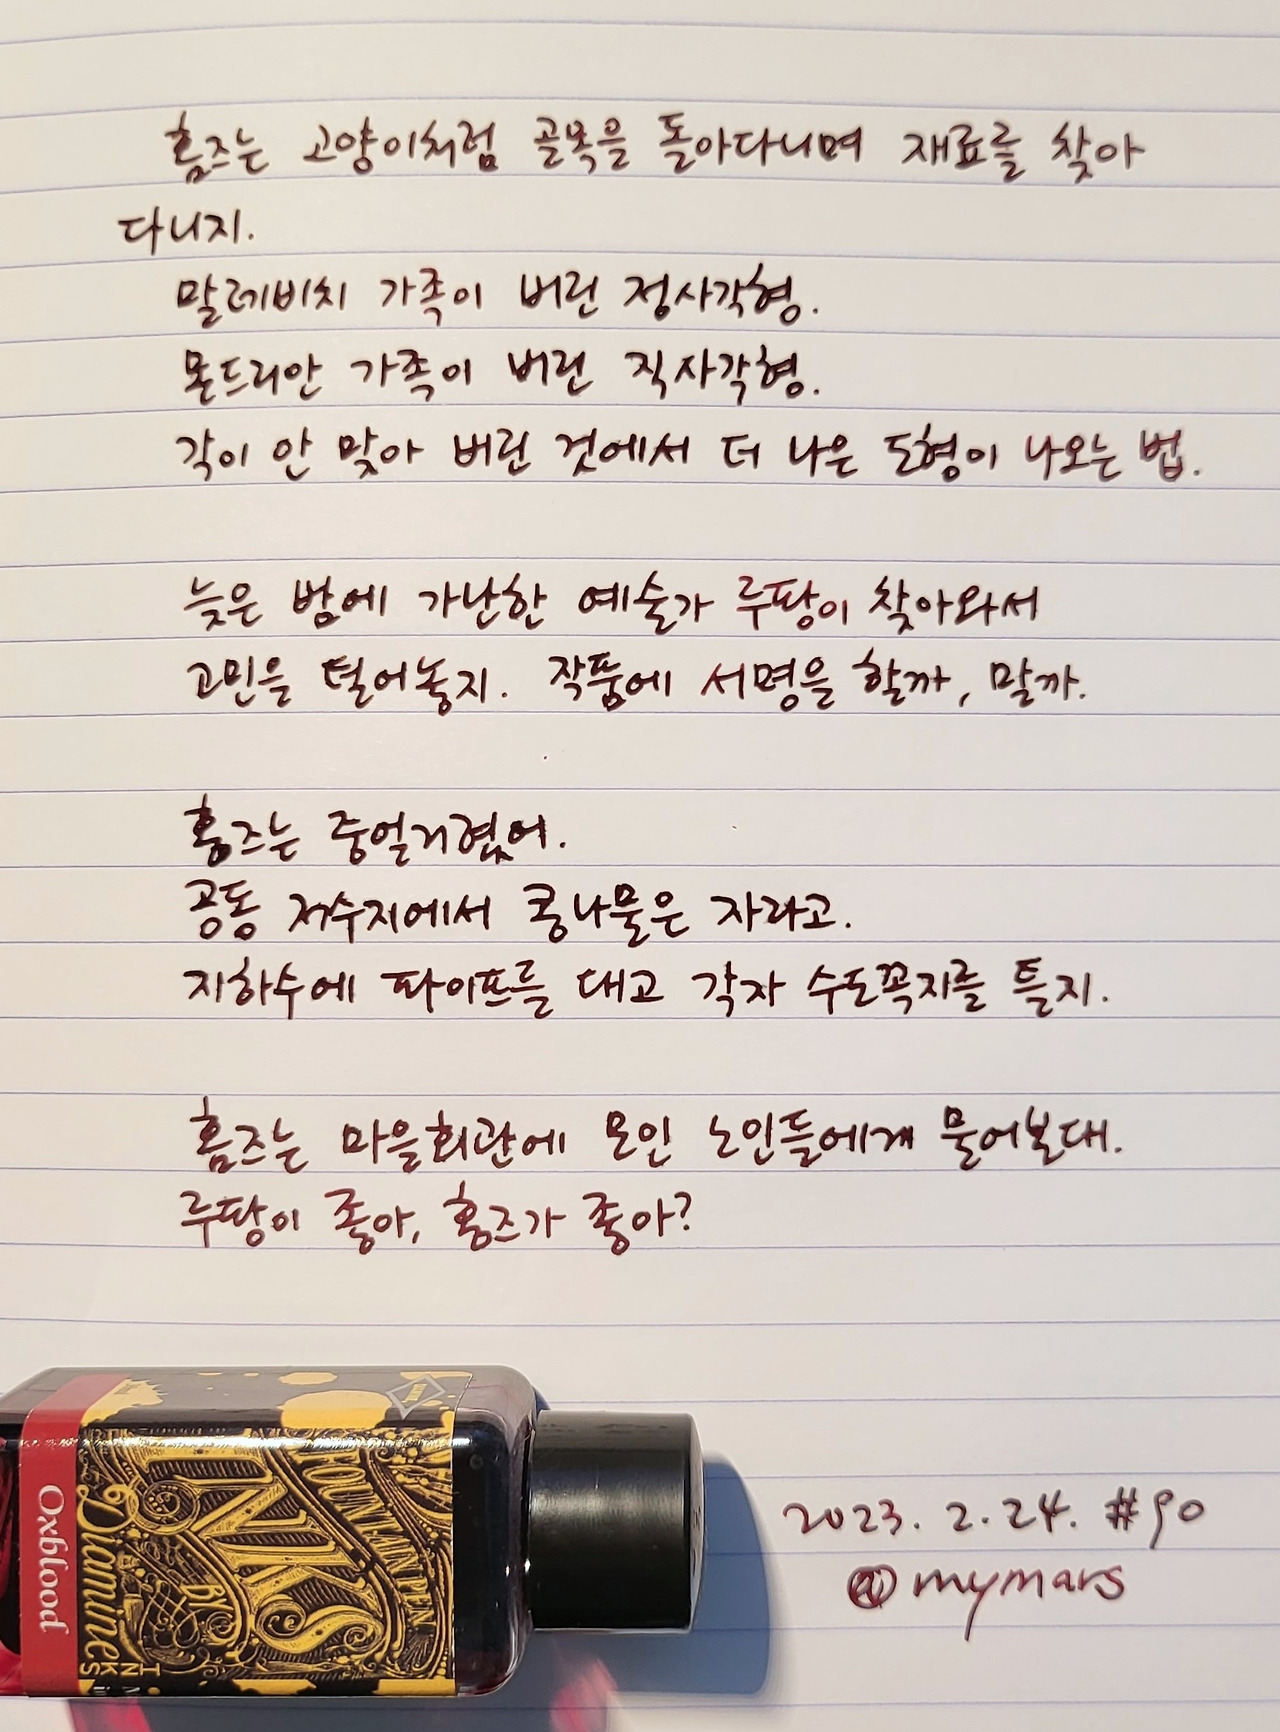 홈즈는 고양이처럼 골목을 돌아다니며 재료를 찾아
다니지.
말레비치 가족이 버린 정사각형.
몬드리안 가족이 버린 직사각형.
각이 안 맞아 버린 것에서 더 나은 도형이 나오는 법.
늦은 밤에 가난한 예술가 루팡이 찾아와서
고민을 털어놓지. 작품에 서명을 할까, 말까.
홈즈는 중얼거렸어.
공동 저수지에서 콩나물은 자라고.
지하수에 파이프를 대고 각자 수도꼭지를 틀지.
홈즈는 마을회관에 모인 노인들에게 물어본대.
루팡이 좋아, 홈즈가 좋아?
2023. 2. 24. #90
@mymars
FOUNTAIN PEN
INKS
BY
Diamine
Oxblood